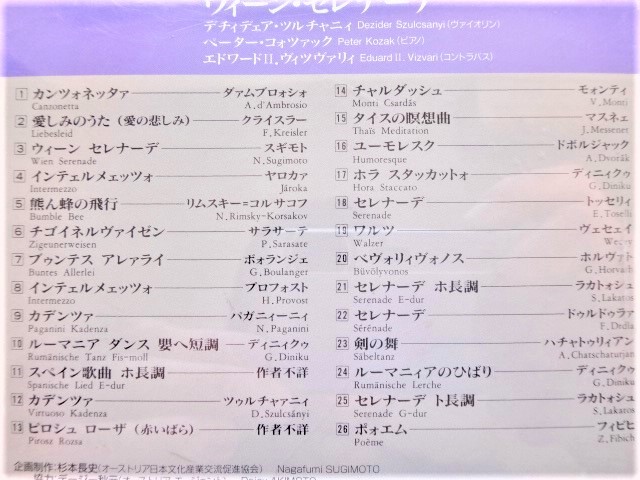 ウィーン・セレナーデ
デチィデェア・ツルチャニィ Dezider Szulcsanyi (ヴァイオリン)
ペーター・コォツァック Peter Kozak (ピアノ)
エドワードII.ヴィツヴァリィ Eduard II. Vizvari (コントラバス)
1 カンツォネッタァ ダァムブロォシォ
Canzonetta A. d'Ambrosio
2 愛しみのうた (愛の悲しみ) クライスラー
Liebesleid F. Kreisler
3 ウィーン セレナーデ スギモト
Wien Serenade N. Sugimoto
4 インテェルメェッツォ ヤロカァ
Intermezzo Jároka
5 熊ん蜂の飛行 リムスキー=コルサコフ
Bumble Bee N. Rimsky-Korsakov
6 チゴイネルヴァイゼン サラサーテ
Zigeunerweisen P. Sarasate
7 ブゥンテス アレァライ ボォランジェ
Buntes Allerlei G. Boulanger
8 インテェルメェッツォ プロフォスト
Intermezzo H. Provost
9 カデンツァ パガニィーニィ
Paganini Kadenza N. Paganini
10 ルーマニア ダンス 嬰ヘ短調 ディニィクゥ
Rumänische Tanz Fis-moll G. Diniku
11 スペイン歌曲 ホ長調 作者不詳
Spanische Lied E-dur
12 カデンツァ ツゥルチャァニィ
Virtuoso Kadenza D. Szulcsányi
13 ピロシュ ローザ (赤いばら) 作者不詳
Pirosz Rozsa
14 チャルダッシュ モォンティ
Monti Csardás V. Monti
15 タイスの瞑想曲 マスネェ
Thaïs Meditation J. Messenet
16 ユーモレスク ドボルジャック
Humoresque A. Dvořák
17 ホラ スタッカットォ ディニィクゥ
Hora Staccato G. Diniku
18 セレナーデ トッセリィ
Serenade E. Toselli
19 ワルツ ヴェセェイ
Walzer
20 ベヴォリィヴォノス ホルヴァト
Büvölyvonos G. Horvath
21 セレナーデ ホ長調 ラカトォシュ
Serenade E-dur S. Lakatos
22 セレナーデ ドゥルドゥラァ
Sérénade F. Drdla
23 剣の舞 ハチャトゥリィアン
Säbeltanz A. Chatschaturjan
24 ルーマニィアのひばり ディニィクゥ
Rumänische Lerche G. Diniku
25 セレナーデ ト長調 ラカトォシュ
Serenade G-dur S. Lakatos
26 ポォエム フィビヒ
Poëme Z. Fibich
企画制作:杉本長史 (オーストリア日本文化産業交流促進協会) Nagafumi SUGIMOTO